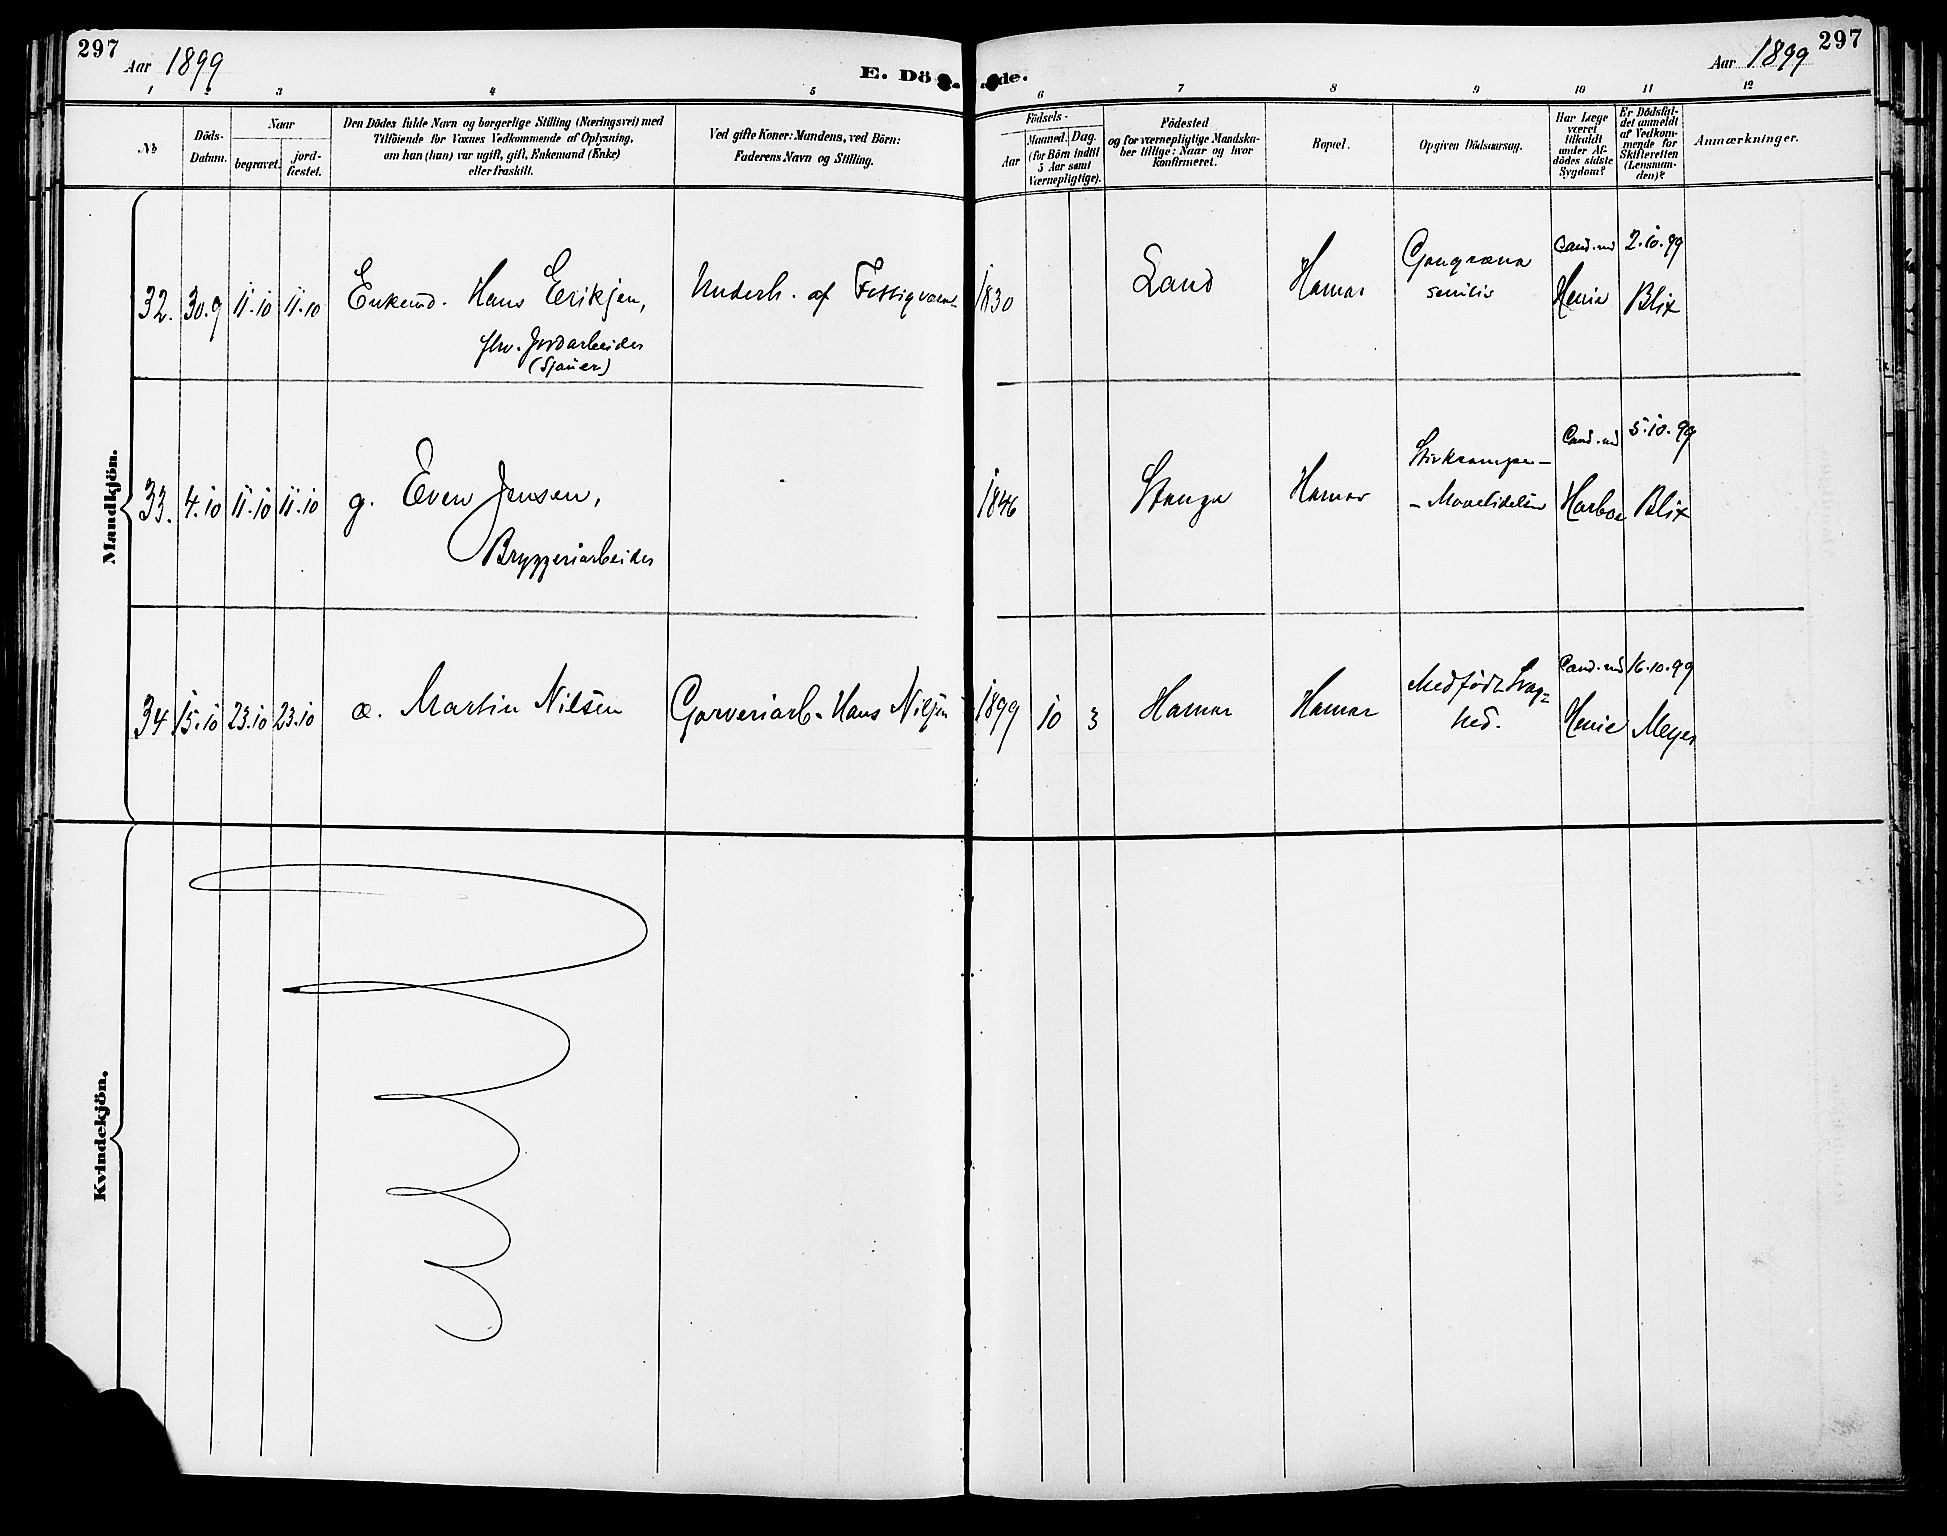 297
Aar 1899
E. Dö
de.
Aar 1899
297
1 2 3 4 5 6 7 8 9 10 11 12
No
Döds-
Datum.
Naar
begravet.
jord-
fæstet.
Den Dödes fulde Navn og borgerlige Stilling (Næringsvei) med
Tilföiende for Voxnes Vedkommende af Oplysning,
om han (hun) var ugift, gift, Enkemand (Enke)
eller fraskilt.
Ved gifte Koner: Mandens, ved Börn:
Faderens Navn og Stilling.
Födsels-
Aar
Maaned.
Dag.
(for Börn indtil
5 Aar samt
Værnepligtige).
Födested
og for værnepligtige Mandska-
ber tillige: Naar og hvor
Konfirmeret.
Bopæl.
Opgiven Dödsaarsag.
Har Læge
været
tilkaldt
under Af-
dödes sidste
Sygdom?
Er Dödsfal-
det anmeldt
af Vedkom-
mende for
Skifteretten
(Lensman-
den)?
Anmærkninger.
Mandkjön.
32. 30.9 11.10 11.10 Enkemd. Hans Eriksen, Underh. af Fattigvæs. 1830 Land Hamar Gangræna
senilis
Cand. md
Henie
2.10.99
Blix
fhv. Jordarbeider
(Sjauer)
33. 4.10 11.10 11.10 g. Even Jensen,
Bryggeriarbeider
1846 Stange Hamar
Cand. md
Harboe
5.10.99
Blix
34 15.10 23.10 23.10 æ. Martin Nilsen Garveriarb. Hans Nilsen 1899 10 3 Hamar Hamar Medfödt Svag-
hed.
Cand. md
Henie
16.10.99
Meyer
Kvindekjön.